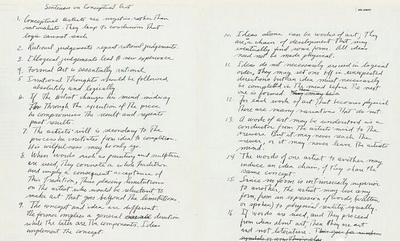 Sentences on Conceptual Art
1. Conceptual artists are mystics rather than
rationalists. They leap to conclusions that
logic cannot reach.
2. Rational judgements repeat rational judgements.
3. Illogical judgements lead to new experience.
4. Formal Art is essentially rational.
5. Irrational thoughts should be followed
absolutely and logically.
6. If the artist changes his mind midway
through the execution of the piece
he compromises the result and repeats
past results.
7. The artist's will is secondary to the
process he initiates from idea to completion.
His wilfullness may be only ego.
8. When words such as painting and sculpture
are used, they connote a whole tradition
and imply a consequent acceptance of
this tradition, thus placing limitations
on the artist who would be reluctant to
make art that goes beyond the limitations.
9. The concept and idea are different.
The former implies a general direction
while the latter are the components. Ideas
implement the concept.
10. Ideas alone can be works of art; They
are in a chain of development that may
eventually find some form. All ideas
need not be made physical.
11. Ideas do not necessarily proceed in logical
order. They may set one off in unexpected
directions but an idea must necessarily
be completed in the mind before the next
one is formed.
12. For each work of art that becomes physical
there are many variations that do not.
13. A work of art may be understood as a
conductor from the artist's mind to the
viewers. But it may never reach the
viewer, or it may never leave the artists
mind.
14. The words of one artist to another may
induce an idea chain, if they share the
same concept.
15. Since no form is intrinsically superior
to another, the artist may use any
form, from an expression of words (written
or spoken) to physical reality, equally.
16. If words are used, and they proceed
from ideas about art, then they are art
and not literature.